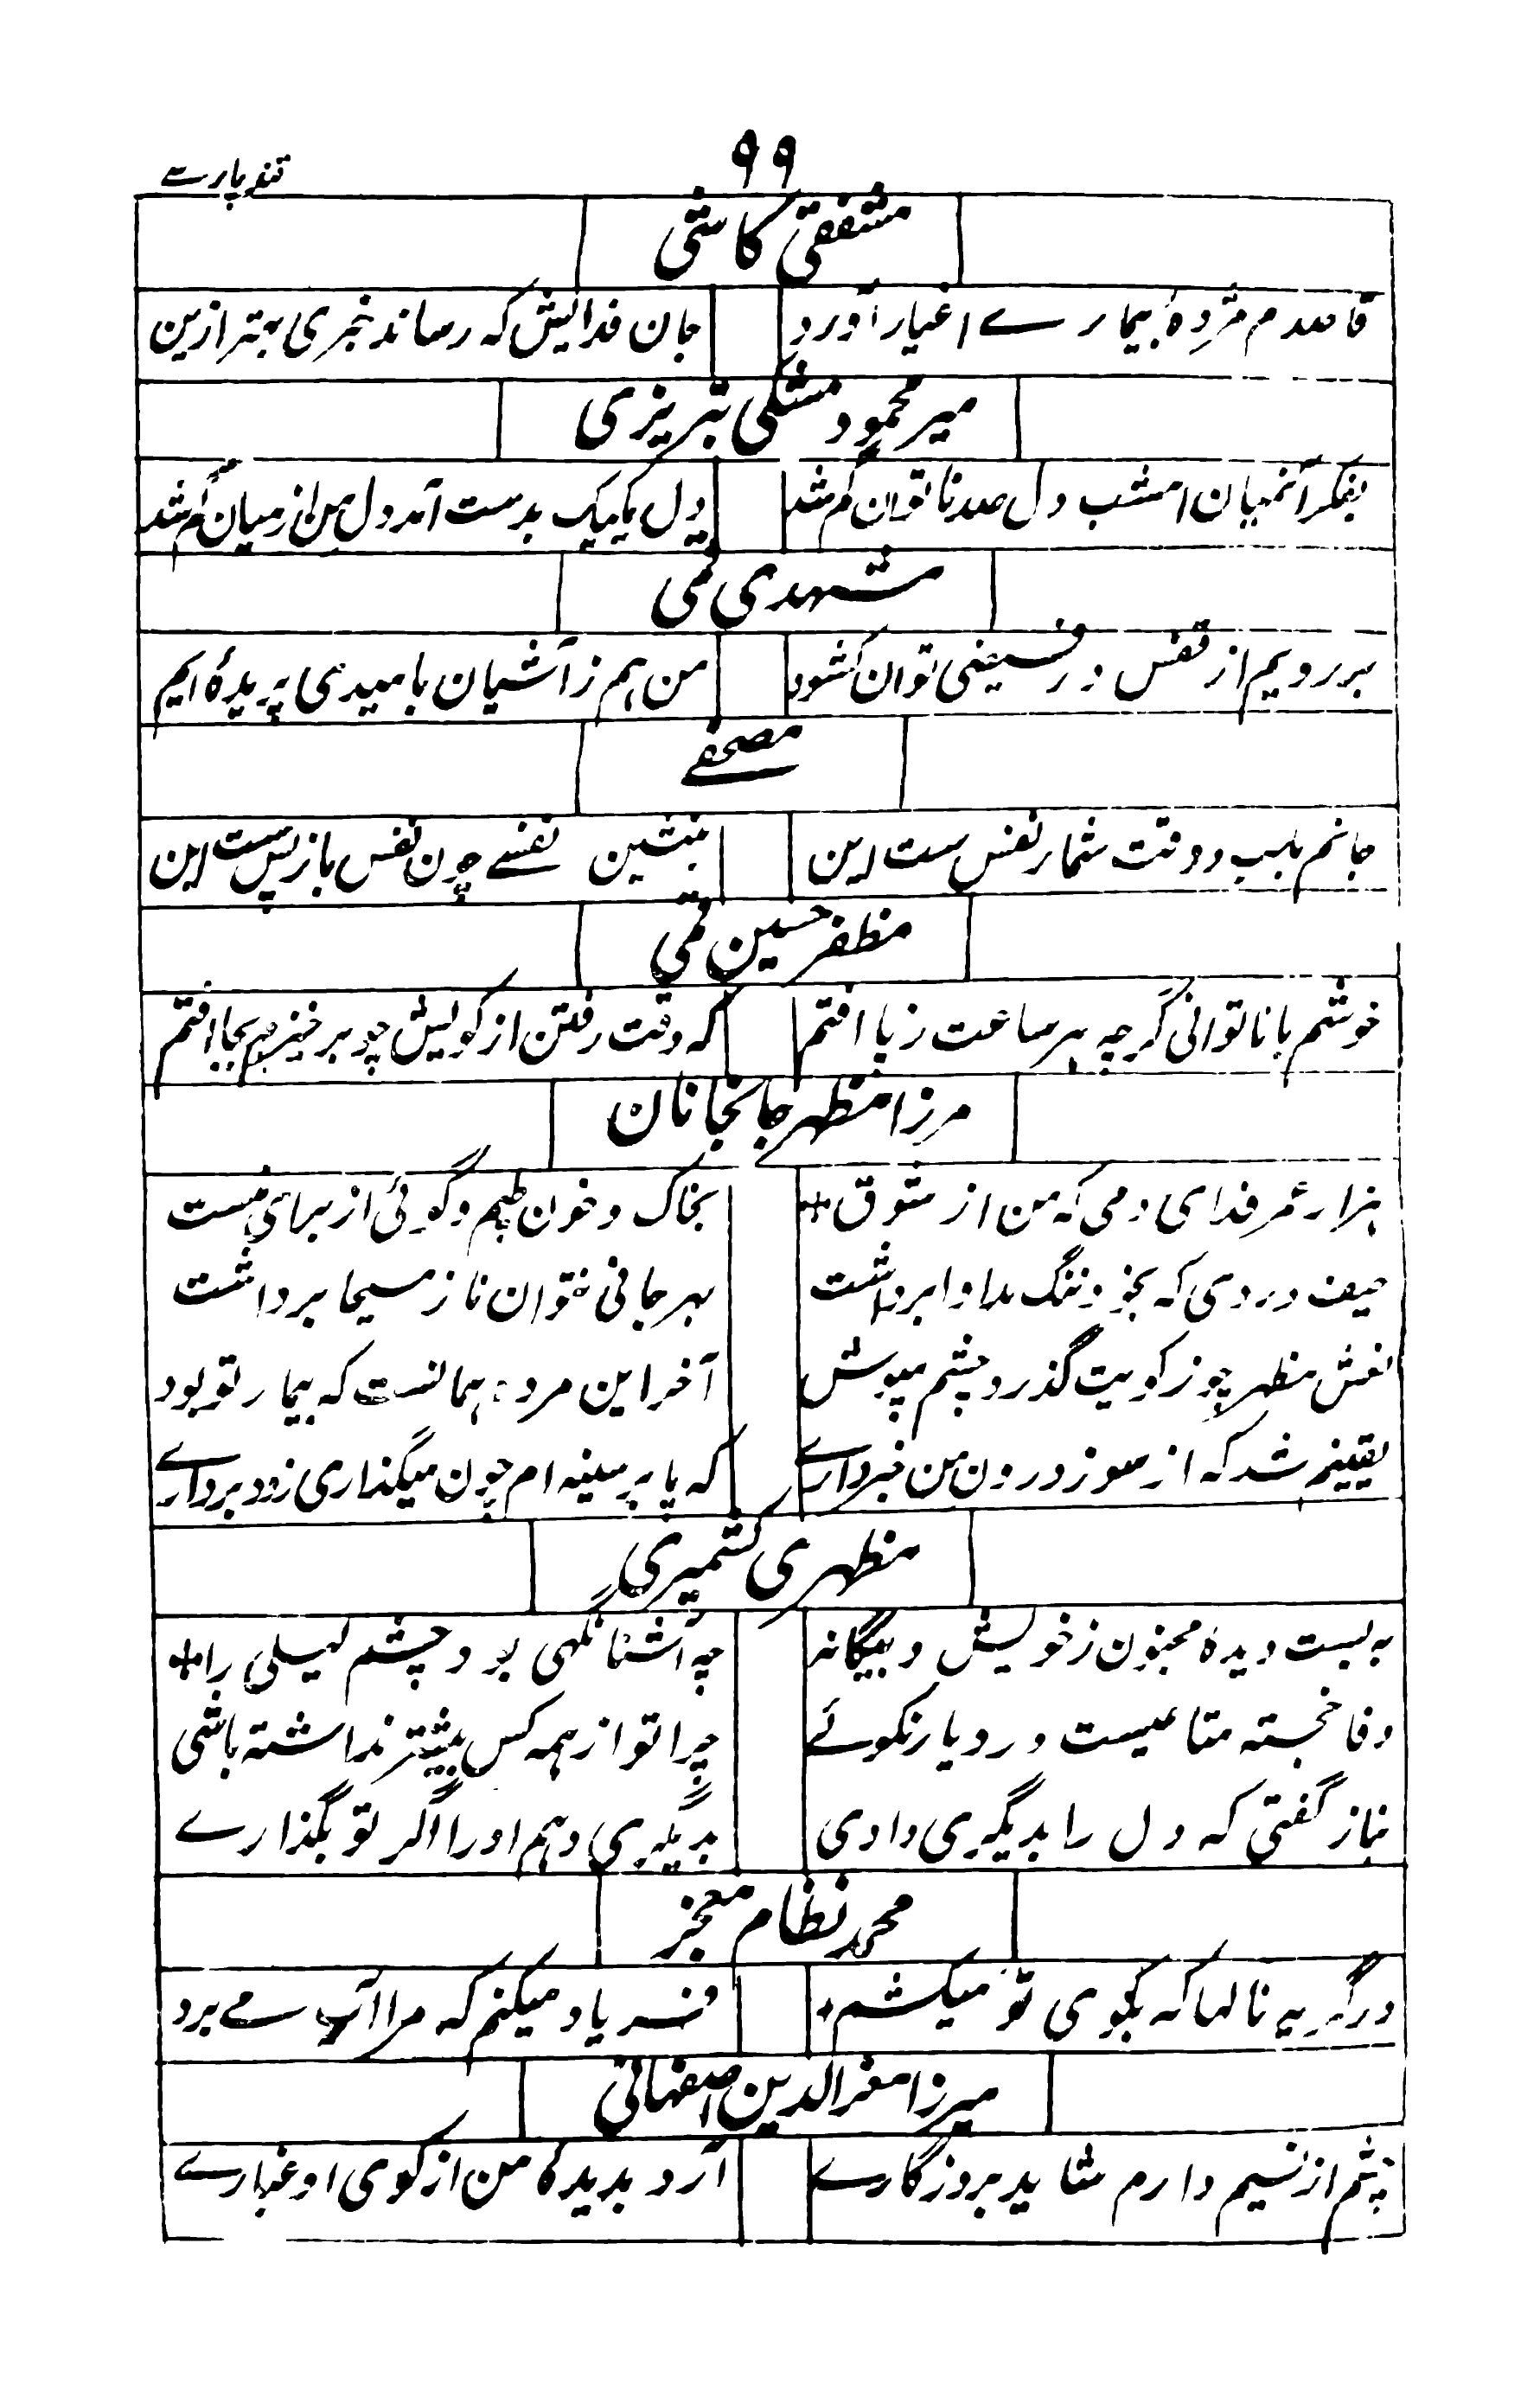 ۹۹
قند پارسے
مشفقی کاشی
قاصدم مژدهٔ بیمارے اغیار آورد جان فدایش که رساند خبری بهتر ازین
میر محمود مشکی تبریزی
بفکر آنمیان امشب دل صد ناتوان گم شد دل یکایک بدست آمد دل من از میان گم شد
مشهدی قمی
بر رویم از قفس در فیضی توان کشود من هم ز آشیان بامیدی پریدهٔ ایم
مصحفے
جانم بلب و وقت شمار نفس ست این بنشین نفسے چون نفس بازپس ست این
مظفر حسین قمی
خوشم با ناتوانی گرچه هر ساعت ز پا افتم که وقت رفتن از کویش چو برخیزم بجا افتم
مرزا مظهر جانجانان
هزار عمر فدای دمی که من از شوق بخاک و خون طپم و گوئی از برای منست
حیف دردی که بخود ننگ مداوا برداشت بهر جانی نتوان ناز مسیحا برداشت
نعش مظهر چو ز کویت گذرد چشم مپوش آخر این مرده همانست که بیمار تو بود
یقینم شد که از سوز درون من خبر دارے که پا بر سینه ام چون میگذاری زود بردارے
مظهری کشمیری
به بست دیدهٔ مجنون ز خویش و بیگانه چه آشنا نگهی بود چشم لیلی را
وفا خجسته متاعیست در دیار نکوئے چرا تو از همه کس بیشتر نداشته باشی
بناز گفتی که دل را بدیگری دادی بدیگری دهم او را اگر تو بگذارے
محمد نظام معجز
در گریه نالها که بکوی تو میکشم فریاد میکنم که مرا آب مے برد
میرزا معزالدین اصفهانی
چشم از نسیم دارم شاید بروزگارے آرد بدیدهٔ من از کوی او غبارے